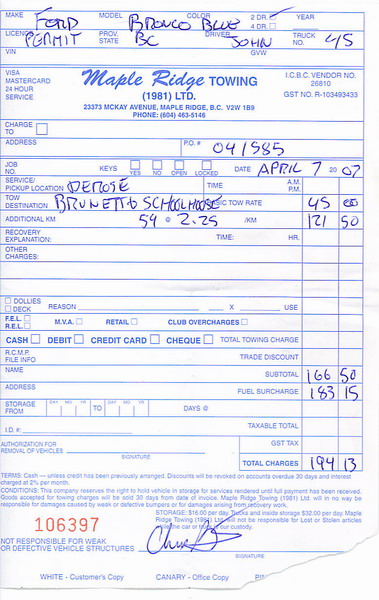 MAKE FORD MODEL BRONCO COLOR BLUE 2 DR. 4 DR. YEAR
LICENCE PERMIT PROV. STATE BC DRIVER JOHN TRUCK NO. 45
VIN GVW
VISA
MASTERCARD
24 HOUR
SERVICE
Maple Ridge TOWING
(1981) LTD.
23373 MCKAY AVENUE, MAPLE RIDGE, B.C. V2W 1B9
PHONE: (604) 463-5146
I.C.B.C. VENDOR NO.
26810
GST NO. R-103493433
CHARGE
TO
ADDRESS P.O.# 041585
JOB NO. KEYS YES NO OPEN LOCKED DATE APRIL 7 20 07
SERVICE/
PICKUP LOCATION DEROSE TIME A.M. P.M.
TOW
DESTINATION BRUNETTO SCHOOLHOUSE BASIC TOW RATE 45 00
ADDITIONAL KM 54 @ 2.25 /KM 121 50
RECOVERY
EXPLANATION: TIME: HR.
OTHER
CHARGES:
DOLLIES
DECK REASON X USE
F.E.L. R.E.L. M.V.A. RETAIL CLUB OVERCHARGES
CASH DEBIT CREDIT CARD CHEQUE TOTAL TOWING CHARGE
R.C.M.P.
FILE INFO TRADE DISCOUNT
NAME SUBTOTAL 166 50
ADDRESS FUEL SURCHARGE 183 15
STORAGE
FROM DAY MO YR TO DAY MO YR DAYS @
I.D.#: TAXABLE TOTAL
AUTHORIZATION FOR
REMOVAL OF VEHICLES SIGNATURE GST TAX
TOTAL CHARGES 194 13
TERMS: Cash — unless credit has been previously arranged. Discounts will be revoked on accounts overdue 30 days and interest
charged at 2% per month.
CONDITIONS: This company reserves the right to hold vehicle in storage for services rendered until full payment has been received.
Goods accepted for towing charges will be sold 30 days from date of invoice. Maple Ridge Towing (1981) Ltd. will in no way be
responsible for damages caused by weak or defective bumpers or for damages arising from recovery work.
STORAGE: $16.00 per day, Trucks and inside storage $32.00 per day. Maple
Ridge Towing (1981) Ltd. will not be responsible for Lost or Stolen articles
while the car or truck is our custody.
106397
NOT RESPONSIBLE FOR WEAK
OR DEFECTIVE VEHICLE STRUCTURES
SIGNATURE
WHITE - Customer's Copy CANARY - Office Copy